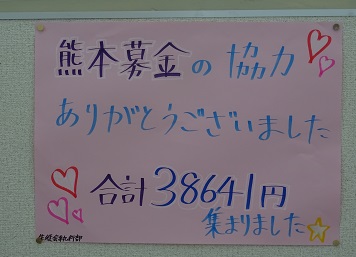 熊本募金の協力
ありがとうございました
合計38641円
集まりました